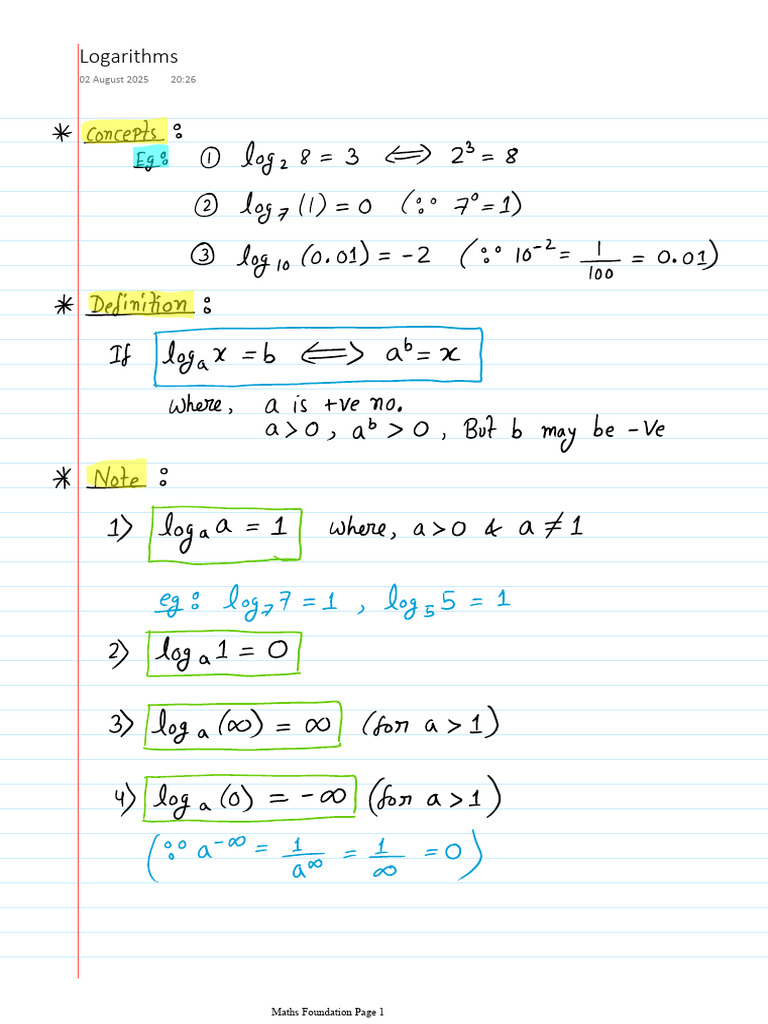 Logarithms
02 August 2025 20:26
* Concepts :
Eg: ① log₂ 8 = 3 ⟺ 2³ = 8
② log₇ (1) = 0 (∵ 7⁰ = 1)
③ log₁₀ (0.01) = -2 (∵ 10⁻² = 1/100 = 0.01)
* Definition :
If logₐ x = b ⟺ aᵇ = x
Where, a is +ve no.
a > 0, aᵇ > 0, But b may be -Ve
* Note :
1) logₐ a = 1 Where, a > 0 & a ≠ 1
eg: log₇ 7 = 1 , log₅ 5 = 1
2) logₐ 1 = 0
3) logₐ (∞) = ∞ (for a > 1)
4) logₐ (0) = -∞ (for a > 1)
(∵ a^-∞ = 1/a^∞ = 1/∞ = 0)
Maths Foundation Page 1